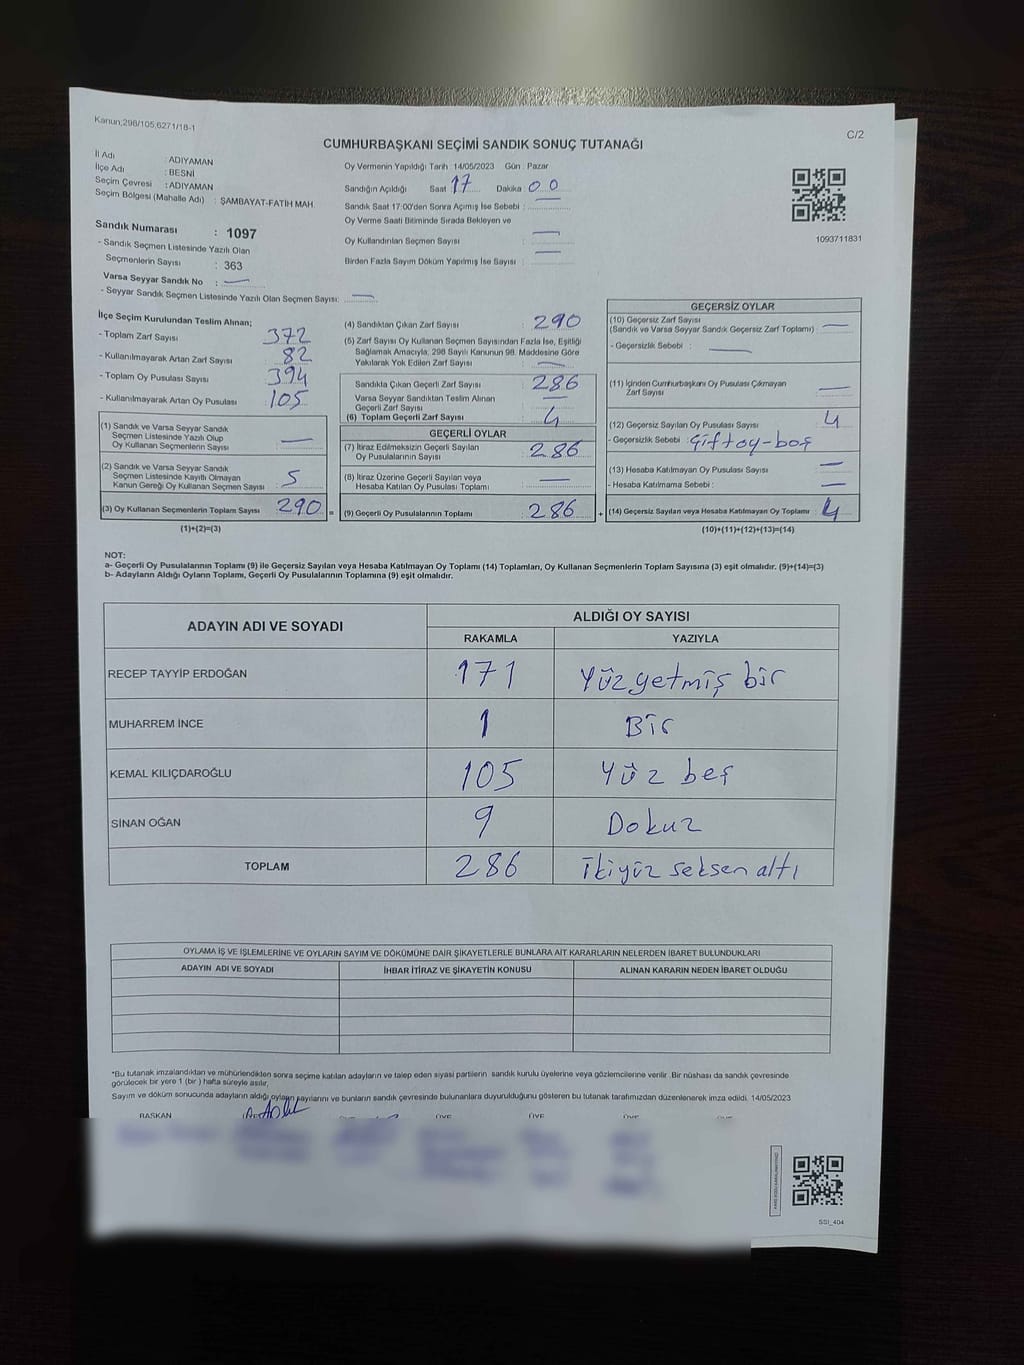 Kanun;298/105,6271/18-1
C/2
CUMHURBAŞKANI SEÇİMİ SANDIK SONUÇ TUTANAĞI
İl Adı : ADIYAMAN
İlçe Adı : BESNİ
Seçim Çevresi : ADIYAMAN
Seçim Bölgesi (Mahalle Adı) : ŞAMBAYAT-FATİH MAH.
Sandık Numarası : 1097
- Sandık Seçmen Listesinde Yazılı Olan
Seçmenlerin Sayısı : 363
Varsa Seyyar Sandık No : —
- Seyyar Sandık Seçmen Listesinde Yazılı Olan Seçmen Sayısı: —
Oy Vermenin Yapıldığı Tarih : 14/05/2023 Gün : Pazar
Sandığın Açıldığı Saat 17 Dakika 00
Sandık Saat 17:00'den Sonra Açımış İse Sebebi : —
Oy Verme Saati Bitiminde Sırada Bekleyen ve
Oy Kullandırılan Seçmen Sayısı : —
Birden Fazla Sayım Döküm Yapılmış İse Sayısı : —
1093711831
İlçe Seçim Kurulundan Teslim Alınan;
- Toplam Zarf Sayısı : 372
- Kullanılmayarak Artan Zarf Sayısı : 82
- Toplam Oy Pusulası Sayısı : 394
- Kullanılmayarak Artan Oy Pusulası : 105
(1) Sandık ve Varsa Seyyar Sandık
Seçmen Listesinde Yazılı Olup
Oy Kullanan Seçmenlerin Sayısı : —
(2) Sandık ve Varsa Seyyar Sandık
Seçmen Listesinde Kayıtlı Olmayan
Kanun Gereği Oy Kullanan Seçmen Sayısı : 5
(3) Oy Kullanan Seçmenlerin Toplam Sayısı : 290 =
(1)+(2)=(3)
(4) Sandıktan Çıkan Zarf Sayısı : 290
(5) Zarf Sayısı Oy Kullanan Seçmen Sayısından Fazla İse, Eşitliği
Sağlamak Amacıyla; 298 Sayılı Kanunun 98. Maddesine Göre
Yakılarak Yok Edilen Zarf Sayısı : —
Sandıkla Çıkan Geçerli Zarf Sayısı : 286
Varsa Seyyar Sandıktan Teslim Alınan
Geçerli Zarf Sayısı : —
(6) Toplam Geçerli Zarf Sayısı : 4
GEÇERLİ OYLAR
(7) İtiraz Edilmeksizin Geçerli Sayılan
Oy Pusulalarının Sayısı : 286
(8) İtiraz Üzerine Geçerli Sayılan veya
Hesaba Katılan Oy Pusulası Toplamı : —
(9) Geçerli Oy Pusulalarının Toplamı : 286 +
GEÇERSİZ OYLAR
(10) Geçersiz Zarf Sayısı
(Sandık ve Varsa Seyyar Sandık Geçersiz Zarf Toplamı) : —
- Geçersizlik Sebebi : —
(11) İçinden Cumhurbaşkanı Oy Pusulası Çıkmayan
Zarf Sayısı : —
(12) Geçersiz Sayılan Oy Pusulası Sayısı : 4
- Geçersizlik Sebebi : Çift oy-boş
(13) Hesaba Katılmayan Oy Pusulası Sayısı : —
- Hesaba Katılmama Sebebi : —
(14) Geçersiz Sayılan veya Hesaba Katılmayan Oy Toplamı : 4
(10)+(11)+(12)+(13)=(14)
NOT:
a- Geçerli Oy Pusulalarının Toplamı (9) ile Geçersiz Sayılan veya Hesaba Katılmayan Oy Toplamı (14) Toplamları, Oy Kullanan Seçmenlerin Toplam Sayısına (3) eşit olmalıdır. (9)+(14)=(3)
b- Adayların Aldığı Oyların Toplamı, Geçerli Oy Pusulalarının Toplamına (9) eşit olmalıdır.
ADAYIN ADI VE SOYADI ALDIĞI OY SAYISI
RAKAMLA YAZIYLA
RECEP TAYYİP ERDOĞAN 171 Yüzyetmiş bir
MUHARREM İNCE 1 Bir
KEMAL KILIÇDAROĞLU 105 Yüz beş
SİNAN OĞAN 9 Dokuz
TOPLAM 286 ikiyüz seksen altı
OYLAMA İŞ VE İŞLEMLERİNE VE OYLARIN SAYIM VE DÖKÜMÜNE DAİR ŞİKAYETLERLE BUNLARA AİT KARARLARIN NELERDEN İBARET BULUNDUKLARI
ADAYIN ADI VE SOYADI İHBAR İTİRAZ VE ŞİKAYETİN KONUSU ALINAN KARARIN NEDEN İBARET OLDUĞU
*Bu tutanak imzalandıktan ve mühürlendikten sonra seçime katılan adayların ve talep eden siyasi partilerin sandık kurulu üyelerine veya gözlemcilerine verilir. Bir nüshası da sandık çevresinde
görülecek bir yere 1 (bir) hafta süreyle asılır.
Sayım ve döküm sonucunda adayların aldığı oyların sayılarını ve bunların sandık çevresinde bulunanlara duyurulduğunu gösteren bu tutanak tarafımızdan düzenlenerek imza edildi. 14/05/2023
BAŞKAN ÜYE ÜYE ÜYE ÜYE
SSI_404